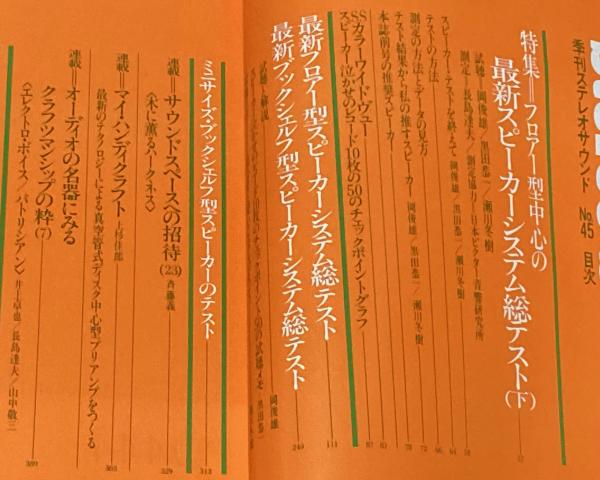 季刊ステレオサウンド No.45 目次
特集=フロアー型中心の
最新スピーカーシステム総テスト(下)
試聴=岡俊雄/黒田恭一/瀬川冬樹
測定=長島達夫/測定協力=日本ビクター音響研究所
スピーカー・テストを終えて 岡俊雄/黒田恭一/瀬川冬樹
テストの方法
測定の方法とデータの見方
テスト結果から私の推すスピーカー 岡俊雄/黒田恭一/瀬川冬樹
本誌前号の推奨スピーカー
SSカラーワイド・ヴュー
スピーカー泣かせのレコード10枚の50のチェックポイントグラフ
最新フロアー型スピーカーシステム総テスト 111
最新ブックシェルフ型スピーカーシステム総テスト 249
試聴と解説
岡俊雄
ミニサイズ・ブックシェルフ型スピーカーのテスト 313
連載=サウンドスペースへの招待(23) 斉藤義 329
〈木に薫るハークネス〉
連載=マイ・ハンディクラフト 上杉佳郎
最新のテクノロジーによる真空管式ディスク中心型プリアンプをつくる 363
連載=オーディオの名器にみる
クラフツマンシップの粋(7)
〈エレクトロボイス/パトリシアン〉 井上卓也/長島達夫/山中敬三 389